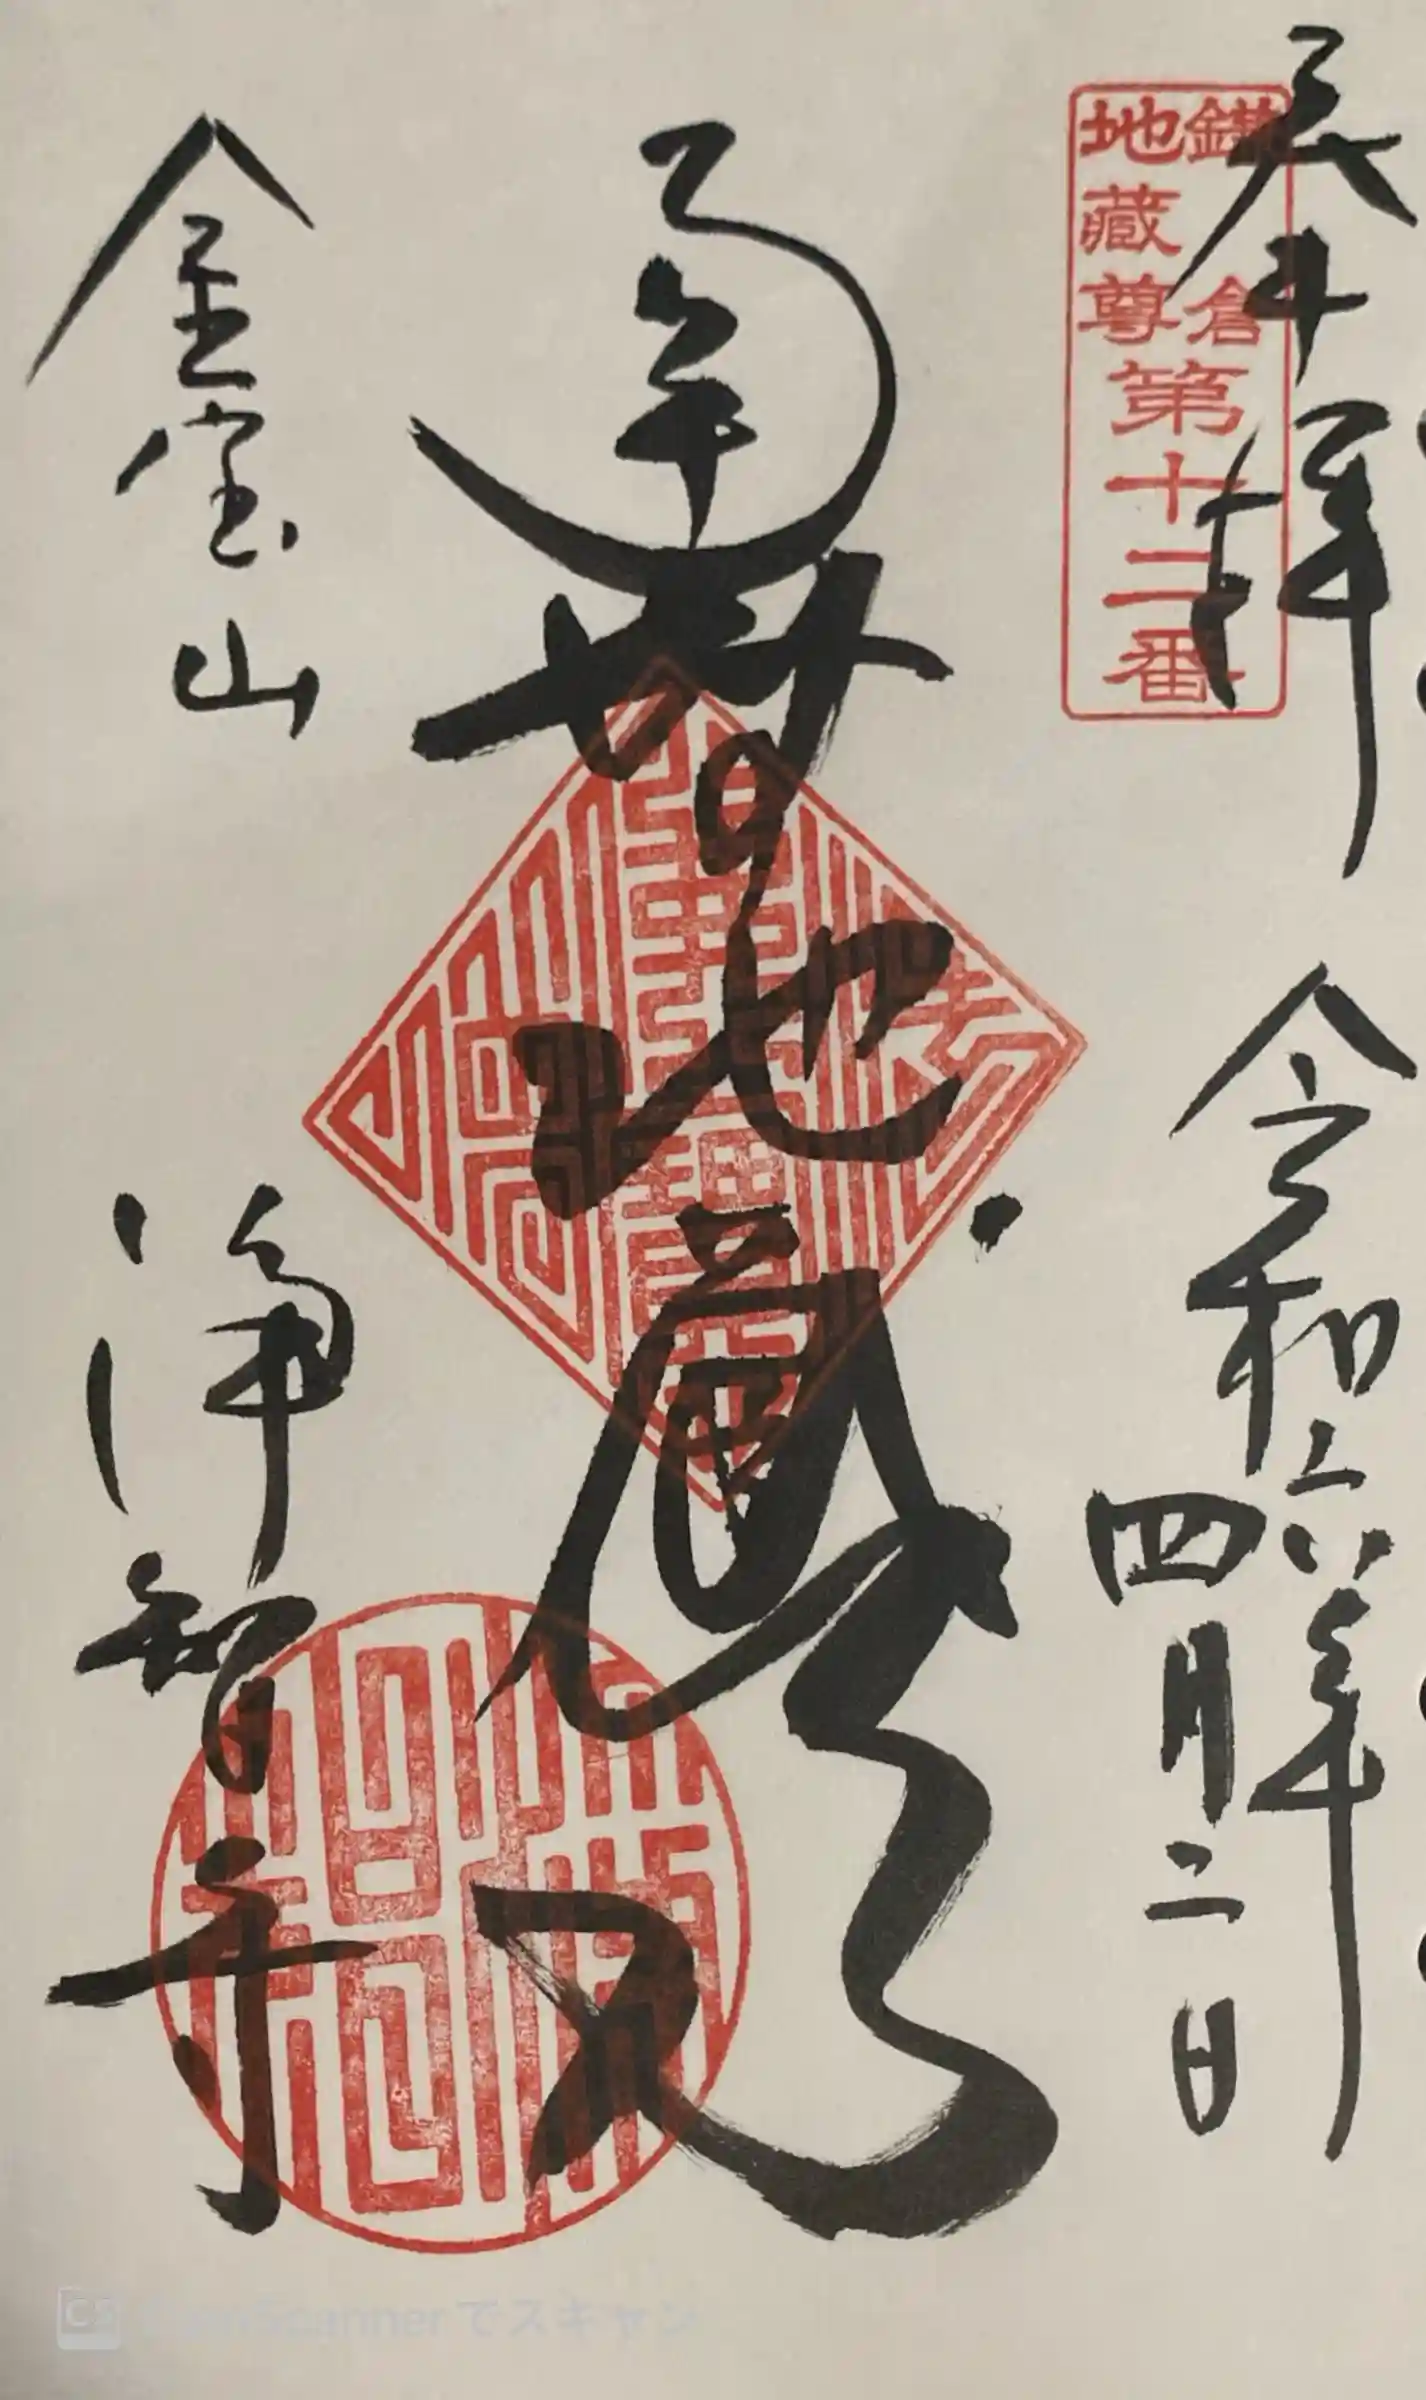 奉拝
鎌倉
地蔵尊
第十二番
令和六年
四月二日
南無地蔵尊
金宝山
浄智寺
CS CamScannerでスキャン